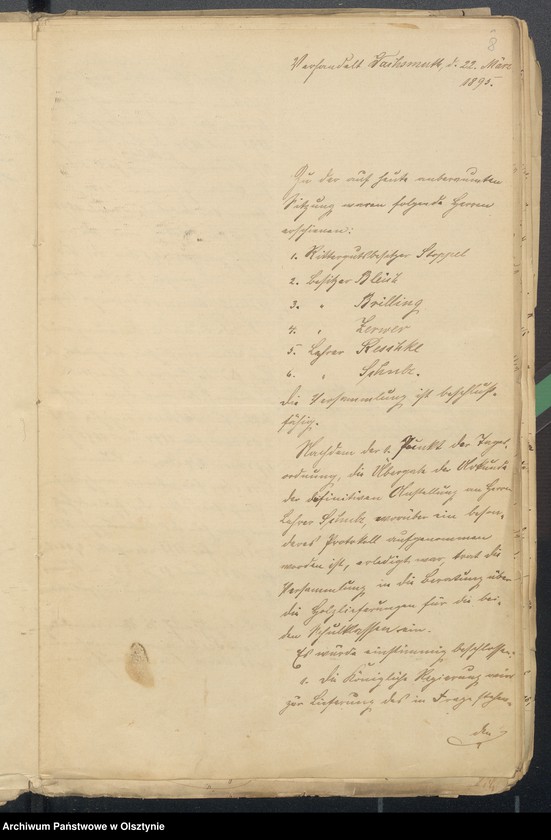 8
Verhandelt Wachsmuth, d. 22. März
1895.
Zu der auf heute anberaumten
Sitzung waren folgende Herren
erschienen:
1. Rittergutsbesitzer Stoppel
2. Besitzer Bleich
3. " Brilling
4. " Zerwer
5. Lehrer Reschke
6. " Schuk.
Die Versammlung ist beschluß-
fähig.
Nachdem der 1. Punkt der Tages-
ordnung, die Übergabe der Urkunde
der definitiven Anstellung an Herrn
Lehrer, worüber ein beson-
deres Protokoll aufgenommen
worden ist, erledigt war, trat die
Versammlung in die Beratung über
die Holzlieferungen für die bei-
den Schulklassen ein.
Es wurde einstimmig beschlossen:
1. Die Königliche Regierung wird
zur Lieferung des in Frage stehen-
den
Archiwum Państwowe w Olsztynie
Archiwum Państwowe w Olsztynie